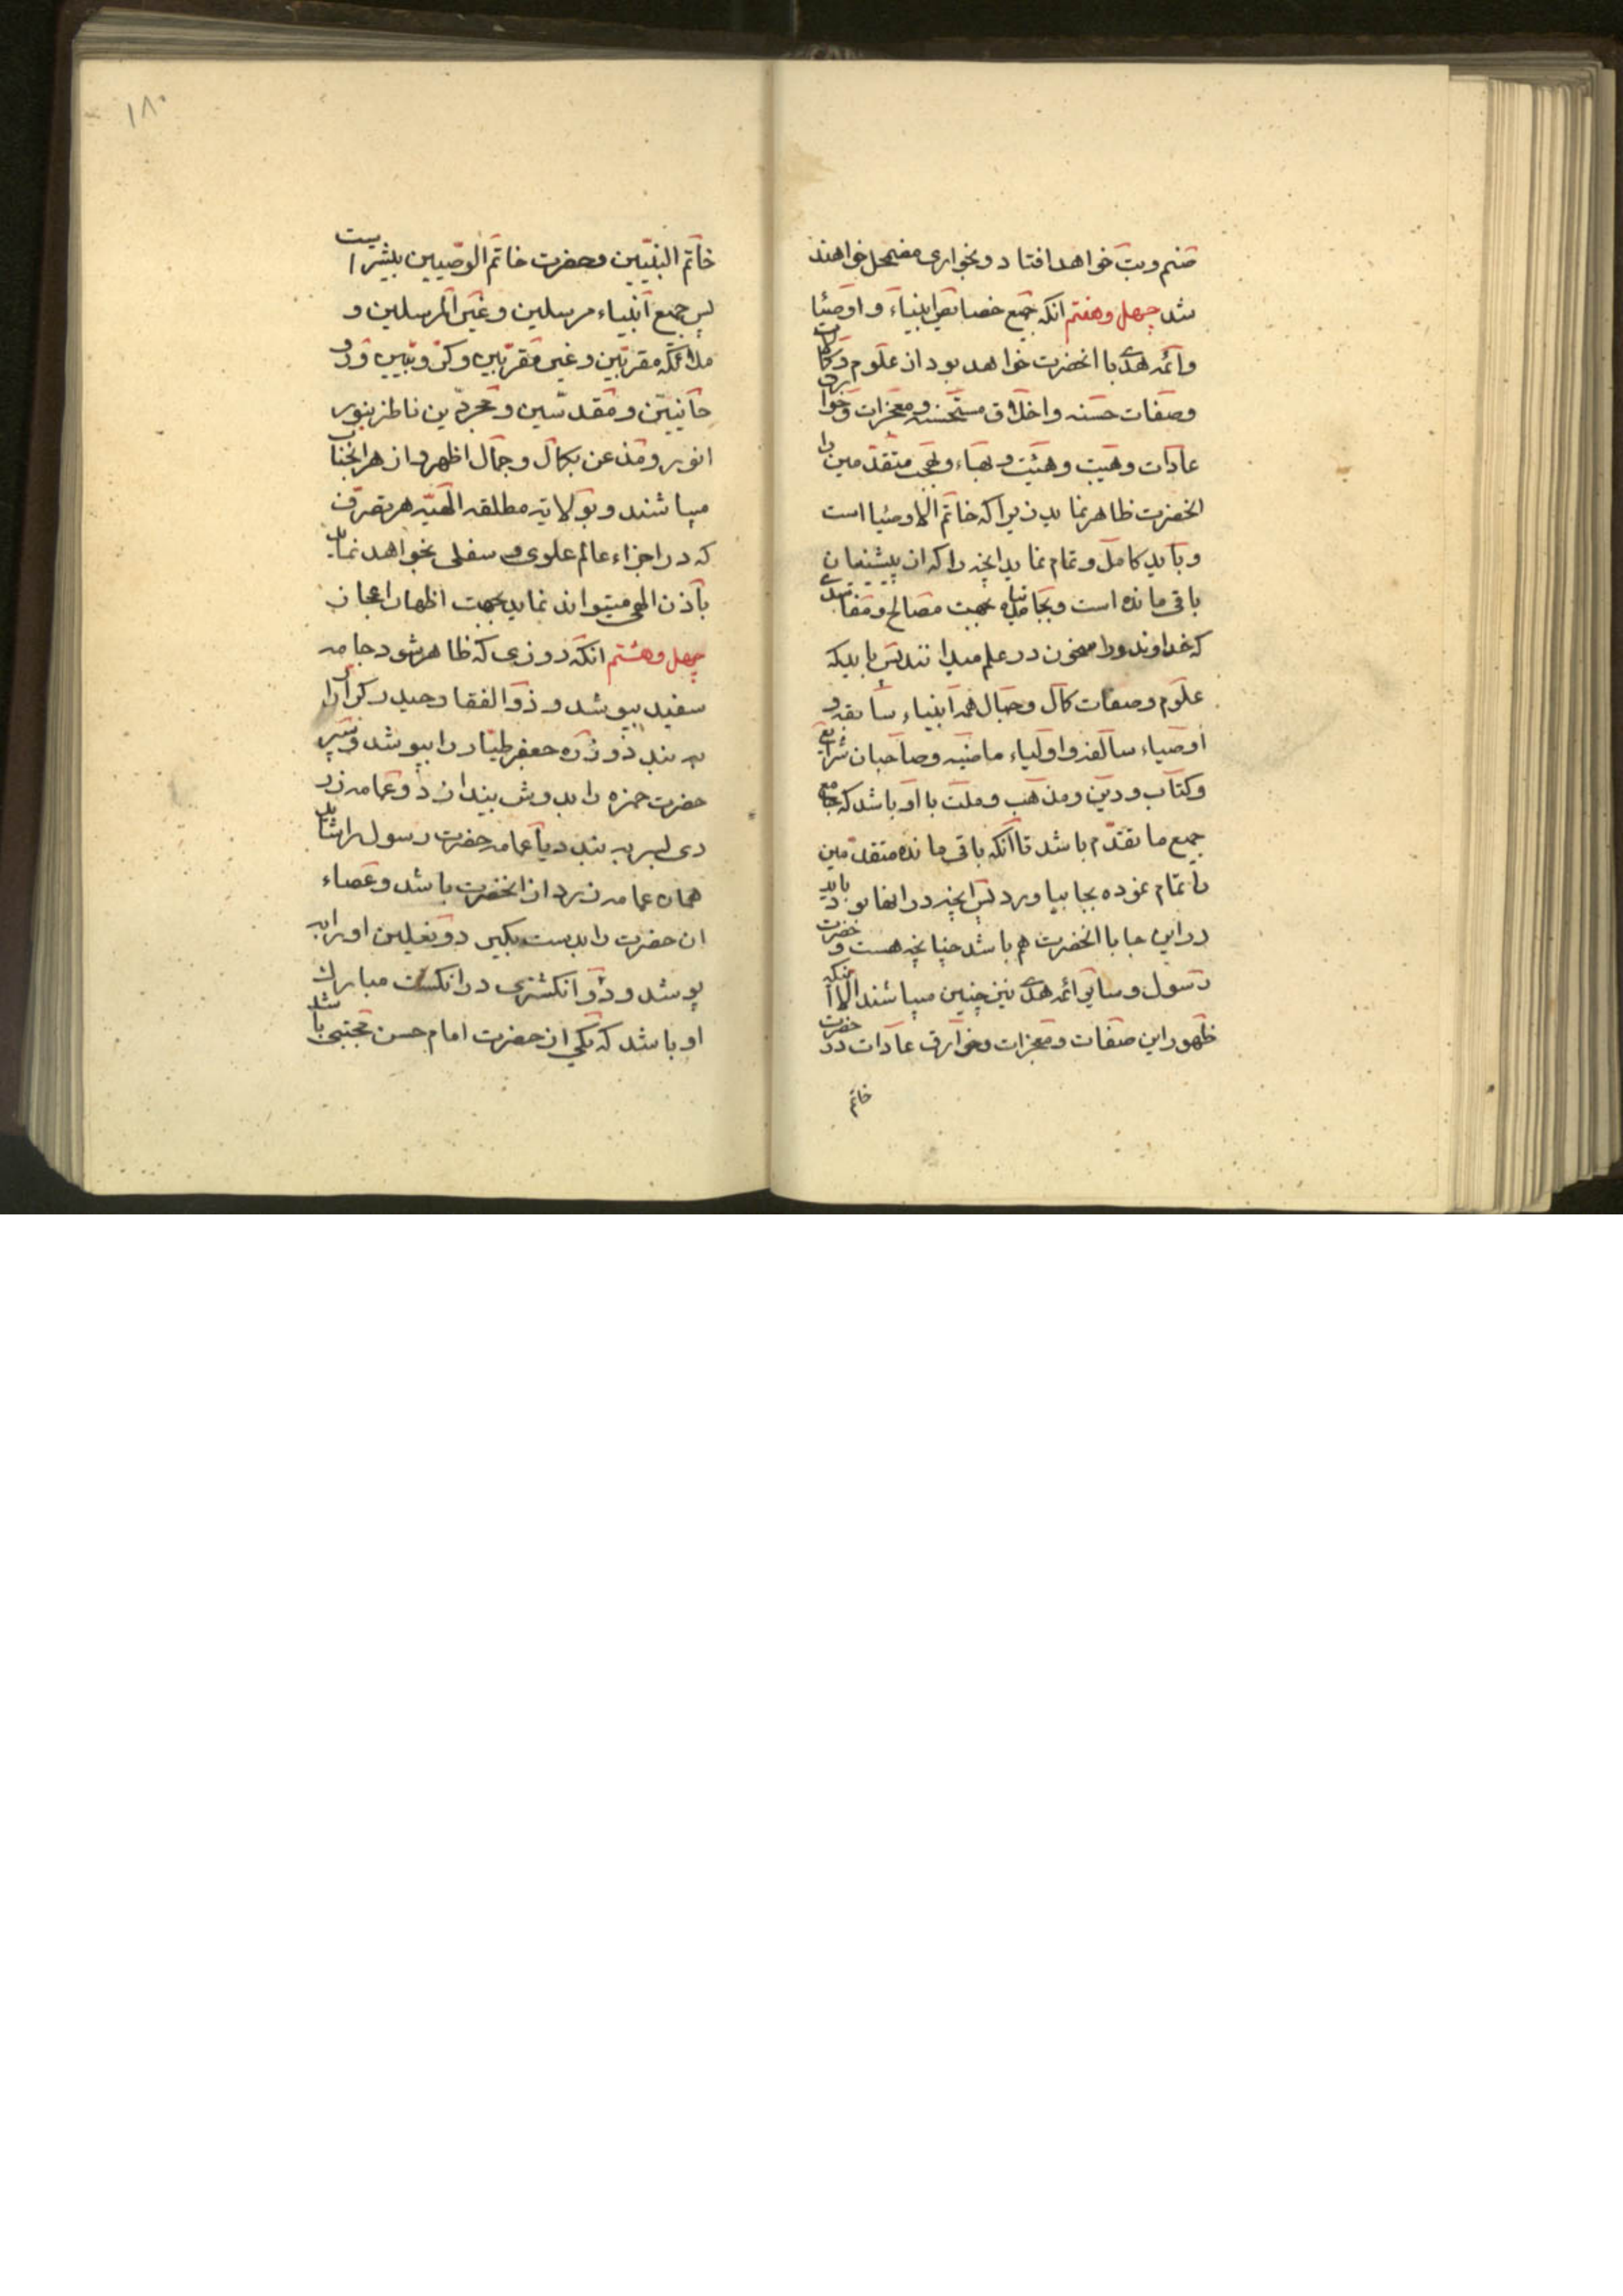 صنم و بت خواهد افتاد و بخواری مضمحل خواهند
شد چهل و هفتم انکه جمیع خصایص انبیاء و اوصیا
وائمه هدی با انحضرت خواهد بود از علوم و کمالات
وصفات حسنه و اخلاق مستحسنه و معجزات و خوارق
عادات و هیبت و هیئت و بهاء و بهجت متقدمین را
انحضرت ظاهر نماید زیرا که خاتم الاوصیا است
و باید کامل و تمام نماید انچه را که از پیشینیان
باقی مانده است و بجا نیامده بجهت مصالح و مفاسدی
که خداوند و راسخون در علم میدانند پس باید که
علوم وصفات کمال و جمال همه انبیاء سابقه و
اوصیاء سالفه و اولیاء ماضیه وصاحبان شرایع
وکتاب و دین و مذهب و ملت با او باشد که جامع
جمیع ما تقدم باشد تا آنکه باقی مانده متقدمین
را تمام نموده بجا بیاورد پس انچه در انها بود باید
در این جا با انحضرت هم باشد چنانچه هست و حضرت
رسول و سایر ائمه هدی نیز چنین میباشند الا آنکه
ظهور این صفات و معجزات و خوارق عادات در حضرت
خاتم
۱۸۰
خاتم النبیین و حضرت خاتم الوصیین بیشتر است
پس جمیع انبیاء مرسلین و غیر المرسلین و
ملائکه مقربین و غیر مقربین و کروبیین و رو
حانیین و مقدسین و مجردین ناظر بنور
انور و مذعن بکمال و جمال اظهر و ازهر انجناب
میباشند و بولایة مطلقه الهیه هر تصرف
که در اجزاء عالم علوی و سفلی بخواهد نماید
باذن الهی میتواند نماید بجهت اظهار اعجاز
چهل و هشتم انکه روزی که ظاهر شود جامه
سفید بپوشد و ذوالفقار حیدر کرار را
به بندد و زره جعفر طیار را بپوشد و سپر
حضرت حمزه را بدوش بیندازد و عمامه زر
دی بسر به بندد یا عمامه حضرت رسول را شاید
همان عمامه زرد از انحضرت باشد و عصاء
ان حضرت را بدست بگیرد و نعلین او را به
پوشد و دو انکشتری در انکشت مبارک
او باشد که یکی از حضرت امام حسن مجتبی باشد